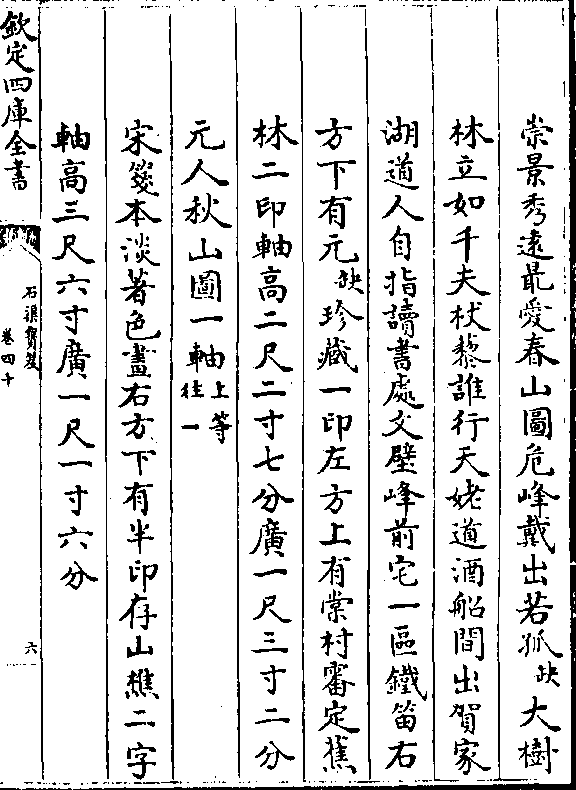 崇景秀遠最愛春山圖危峰戴出若孤缺大樹
林立如千夫杖藜誰行天姥道酒船間出賀家
湖道人自指讀書處文壁峰前宅一區鐵笛右
方下有元缺珍藏一印左方上有棠村審定蕉
林二印軸高二尺二寸七分廣一尺三寸二分
元人秋山圖一軸上等往一
宋箋本淡著色畫右方下有半印存山樵二字
軸高三尺六寸廣一尺一寸六分
欽定四庫全書
石渠寶笈
卷四十
六